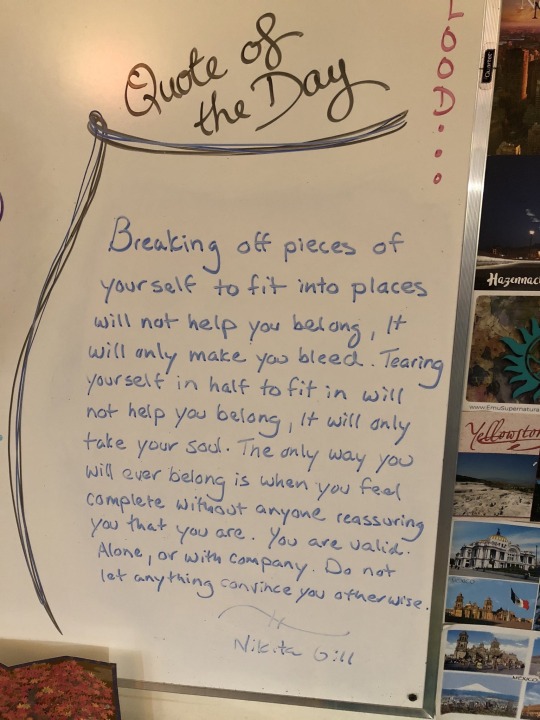 Quote of
the Day
LOOD...
Breaking off pieces of
yourself to fit into places
will not help you belong, It
will only make you bleed. Tearing
yourself in half to fit in will
not help you belong, It will only
take your soul. The only way you
will ever belong is when you feel
complete without anyone reassuring
you that you are. You are valid.
Alone, or with company. Do not
let anything convince you otherwise.
Nikita Gill
Quartet
Hazennac
www.EmuSupernatura
Yellowston
MEXICO
MEXICO